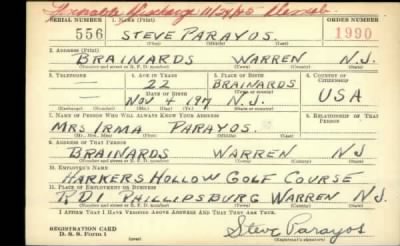 Honorable Discharge 11/24/45
SERIAL NUMBER 1. NAME (Print) ORDER NUMBER
556 STEVE PARAYOS. 1990
(First) (Middle) (Last)
2. ADDRESS (Print)
BRAINARDS WARREN N.J.
(Number and street or R. F. D. number) (Town) (County) (State)
3. TELEPHONE 4. AGE IN YEARS 5. PLACE OF BIRTH 6. COUNTRY OF CITIZENSHIP
— 22 BRAINARDS
DATE OF BIRTH (Town or county)
— NOV 4 N.J. USA
(Exchange) (Number) (Mo.) (Day) (Yr.) (State or country)
7. NAME OF PERSON WHO WILL ALWAYS KNOW YOUR ADDRESS 8. RELATIONSHIP OF THAT PERSON
MRS IRMA PARAYOS.
(Mr., Mrs., Miss) (First) (Middle) (Last)
9. ADDRESS OF THAT PERSON
BRAINARDS WARREN N.J.
(Number and street or R. F. D. number) (Town) (County) (State)
10. EMPLOYER'S NAME
HARKERS HOLLOW GOLF COURSE
11. PLACE OF EMPLOYMENT OR BUSINESS
RD1 PHILLIPSBURG WARREN NJ
(Number and street or R. F. D. number) (Town) (County) (State)
I AFFIRM THAT I HAVE VERIFIED ABOVE ANSWERS AND THAT THEY ARE TRUE.
REGISTRATION CARD
D. S. S. Form 1
Steve Parayos
(Registrant's signature)